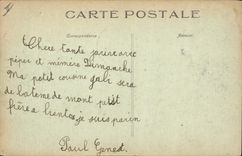 CARTE POSTALE
Correspondance
Adresse
Chere tante jarive avec
peper et mémère Dimanche
Ma petit cousine gabi sera
de bateme de mont petit
frère a bientot je suis parin
Paul Genest